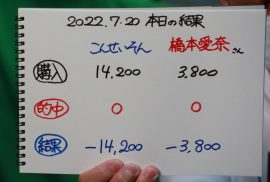 2022.7.20 本日の結果
こんせいそん 橋本愛奈さん
購入 14,200 3,800
的中 0 0
結果 -14,200 -3,800